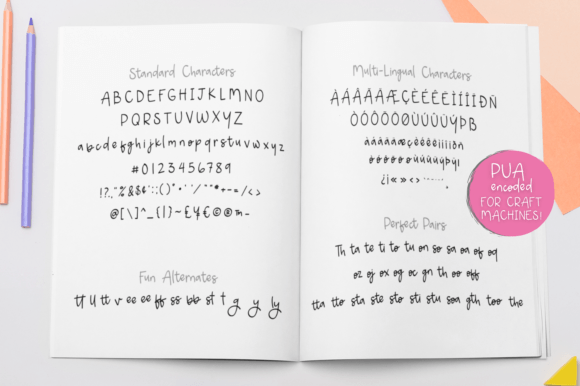 Standard Characters
ABCDEFGHIJKLMNO
PQRSTUVWXYZ
abcdefghijklmnopqrstuvwxyz
#0123456789
@[\]^_{|}~£¥€©®™-
Fun Alternates
tt ll tt v ee ee ff ss bb st t g y ly
Multi-Lingual Characters
ÀÁÂÃÄÅÆÇÈÉÊËÌÍÎÏÐÑ
ÒÓÔÕÖØÙÚÛÜÝÞß
àáâãäåæçèéêëìíîïðñ
òóôõöøùúûüýþÿ
¿¡«»‹›
Perfect Pairs
Th ta te ti to tu on so sa oa of oq
oz oj ox og oc gn th oo off
tta tto sta ste sto sti stu soa gth too the
PUA
encoded
FOR CRAFT
MACHINES!